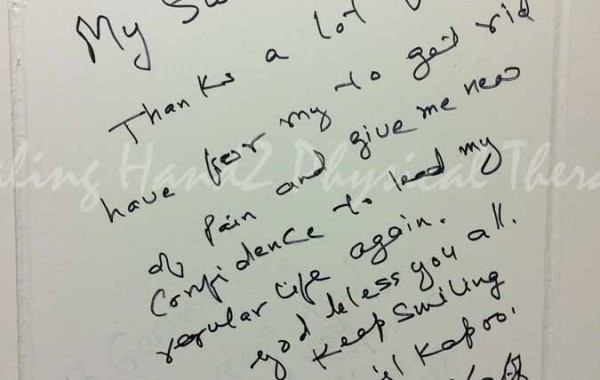 My
Thanks a lot
have for my to get rid
of pain and give me new
Confidence to lead my
regular life again.
god bless you all.
Keep smiling
Kapoo
aling Hand2 Physical Thera